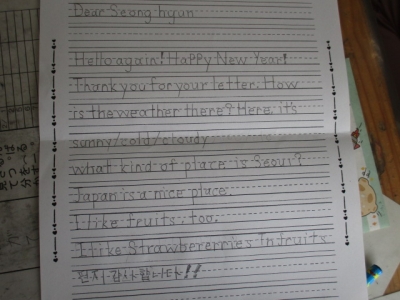 Dear Seong hyun
Hello again! Happy New Year!
Thank you for your letter. How
is the weather there? Here, it's
sunny/cold/cloudy
what kind of place is Seoul?
Japan is a nice place.
I like fruits, too.
I like Strawbererries In fruits
편지 감사합니다!!